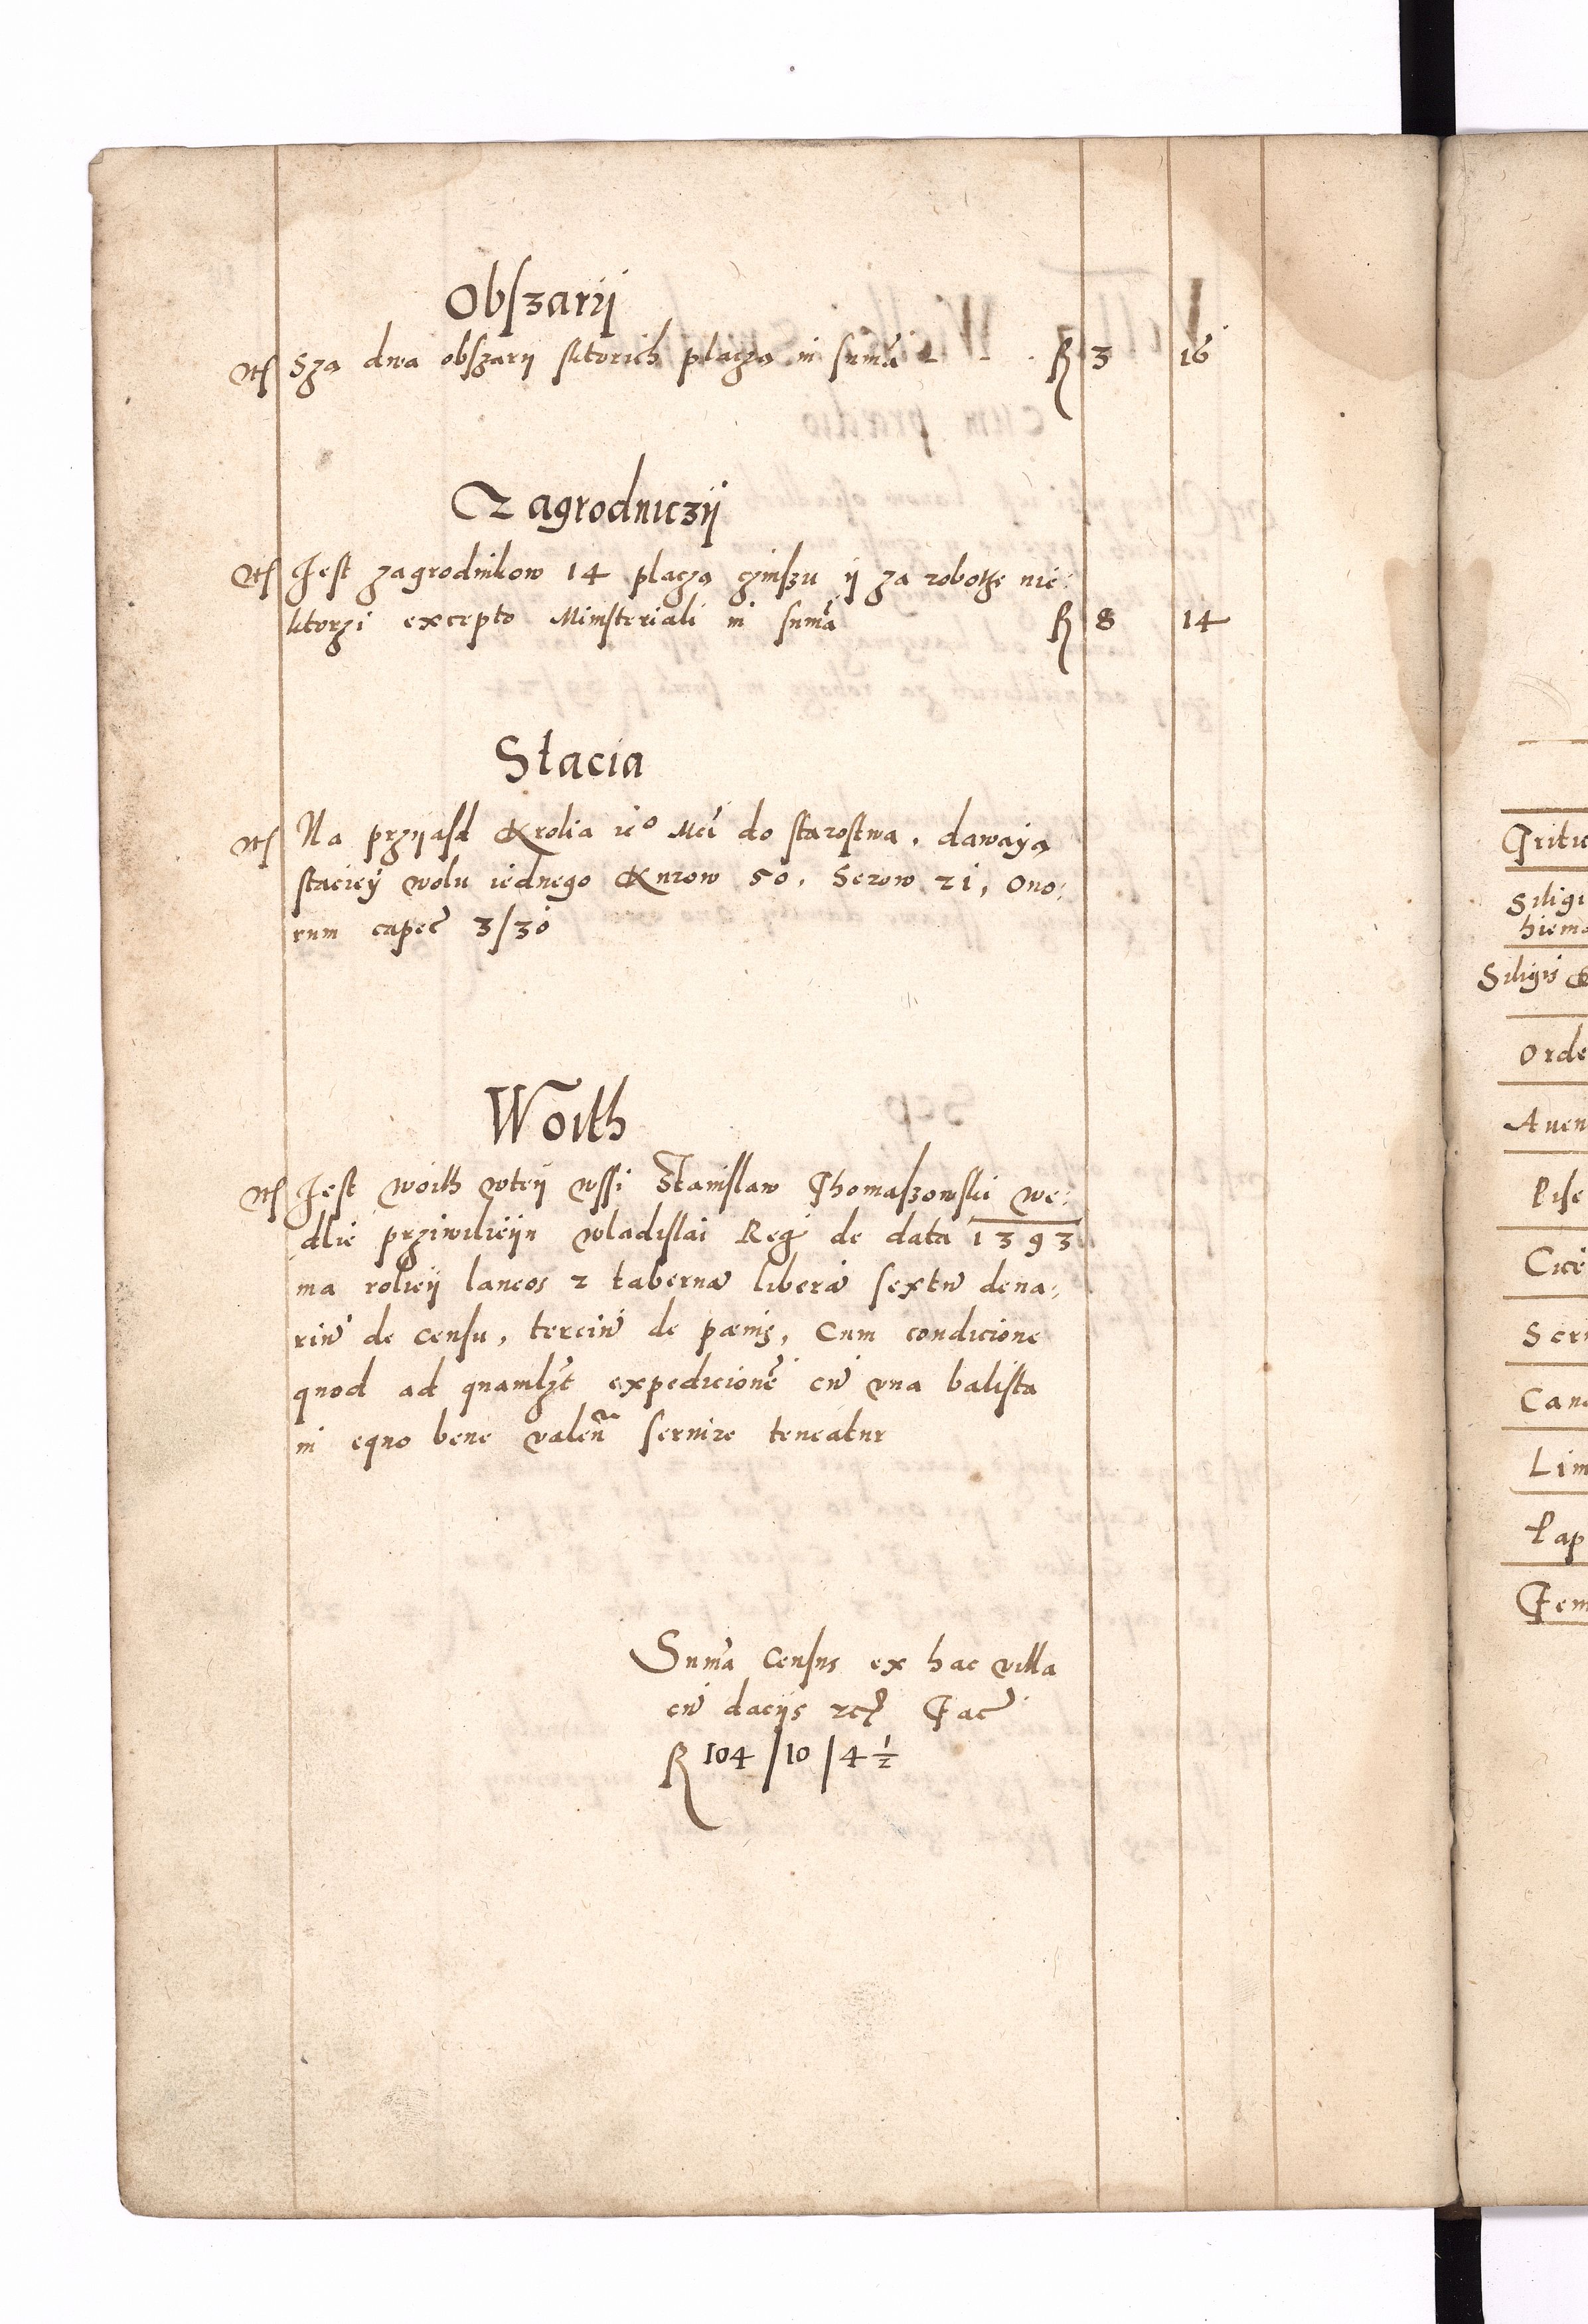 Obszarij
Sza dwa obszarij sktorich placza in sum̃a - - . f 3 16
Zagrodniczij
Jest zagrodnikow 14 placza czinszu ij za robothe nie:
ktorzi excepto Ministeriali in sum̃a f 8 14
Stacia
Na przijasd Krolia ie° Mci do starostwa, dawaja
staciej wolu iednego Kurow 50, Serow 21, Ouo:
rum capec 3/30
Woith
Jest woith wtej wssi Stanislaw Thomaszowski we:
dlie prziwilieijn wladislai Reg de data 1393
ma roliej laneos 2 taberna libera sextu dena:
riu de censu, terciu de pœnis, Cum condicione
quod ad quamlzt expedicione cu vna balista
in equo bene valen seruire teneatur
Suma Census ex hac villa
cu dacijs Fac
f 104/10/4½
Tritic
Siligi
hiema
Siligis
Orde
Auen
Pise
Cice
Cana
Lim
Pap